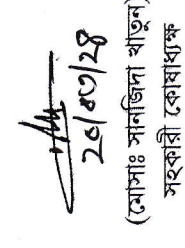 ২০/০৩/২৪
(মোসাঃ সানজিদা খাতুন)
সহকারী কোষাধ্যক্ষ